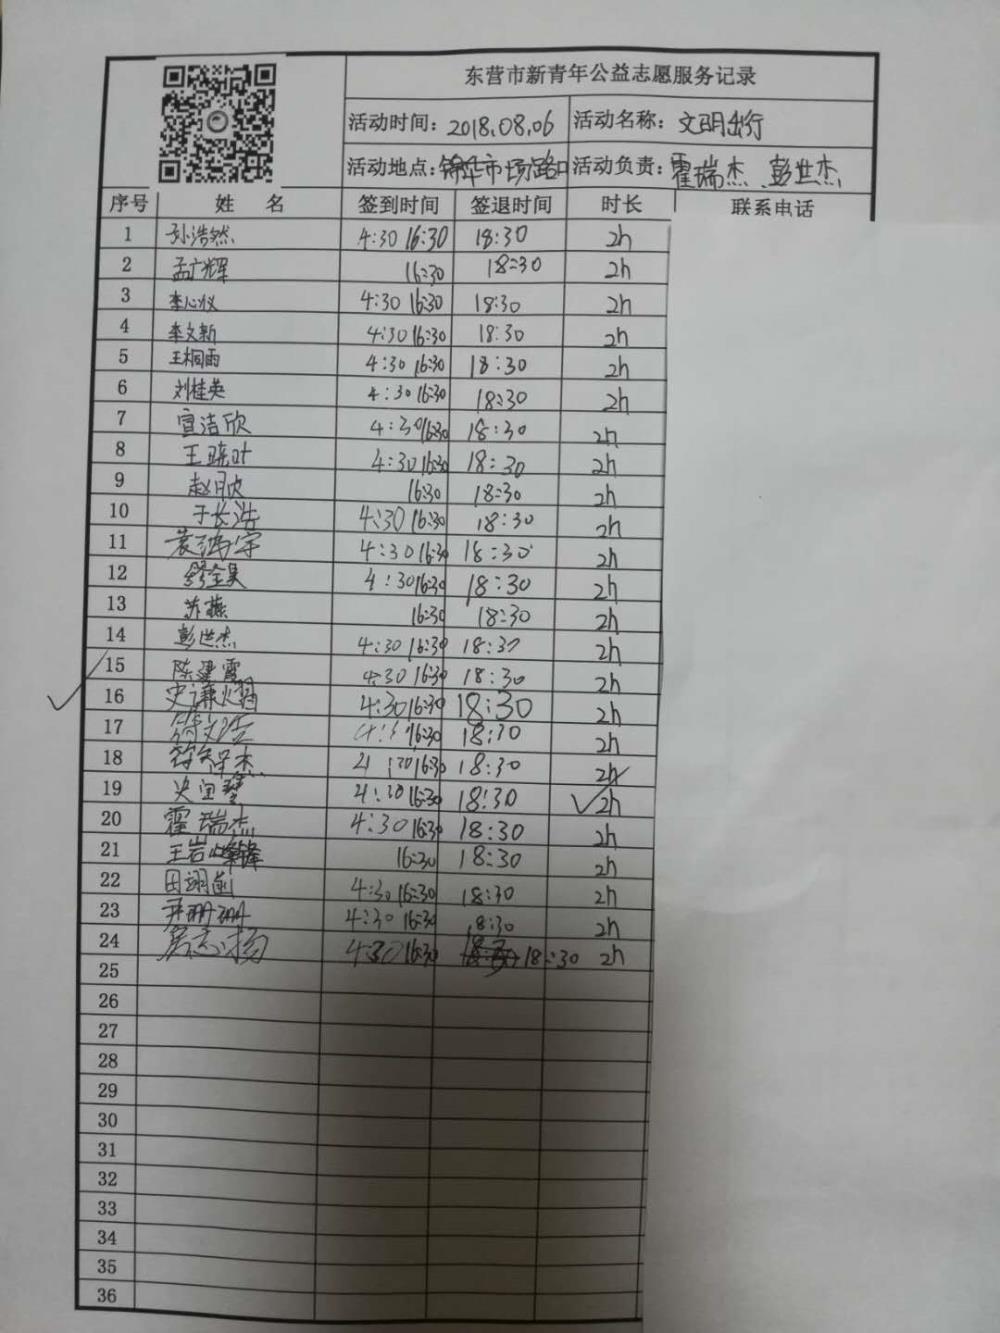 东营市新青年公益志愿服务记录
活动时间：2018.08.06 活动名称：文明出行
活动地点：锦华市场路口 活动负责：霍瑞杰、彭世杰
序号 姓 名 签到时间 签退时间 时长 联系电话
1 孙浩然 4:30 16:30 18:30 2h
2 孟广辉 16:30 18:30 2h
3 李心仪 4:30 16:30 18:30 2h
4 李文新 4:30 16:30 18:30 2h
5 王桐雨 4:30 16:30 18:30 2h
6 刘桂英 4:30 16:30 18:30 2h
7 宣洁欣 4:30 16:30 18:30 2h
8 王 叶 4:30 16:30 18:30 2h
9 赵 16:30 18:30 2h
10 于长浩 4:30 16:30 18:30 2h
11 袁 宇 4:30 16:30 18:30 2h
12 4:30 16:30 18:30 2h
13 苏燕 16:30 18:30 2h
14 彭世杰 4:30 16:30 18:30 2h
15 陈建霞 4:30 16:30 18:30 2h
16 史谦 4:30 16:30 18:30 2h
17 16:30 18:30 2h
18 杰 4:30 16:30 18:30 2h
19 史 4:30 16:30 18:30 2h
20 霍瑞杰 4:30 16:30 18:30 2h
21 王岩 16:30 18:30 2h
22 田翊 4:30 16:30 18:30 2h
23 尹珊珊 4:30 16:30 18:30 2h
24 房志扬 4:30 16:30 18:30 2h
25
26
27
28
29
30
31
32
33
34
35
36